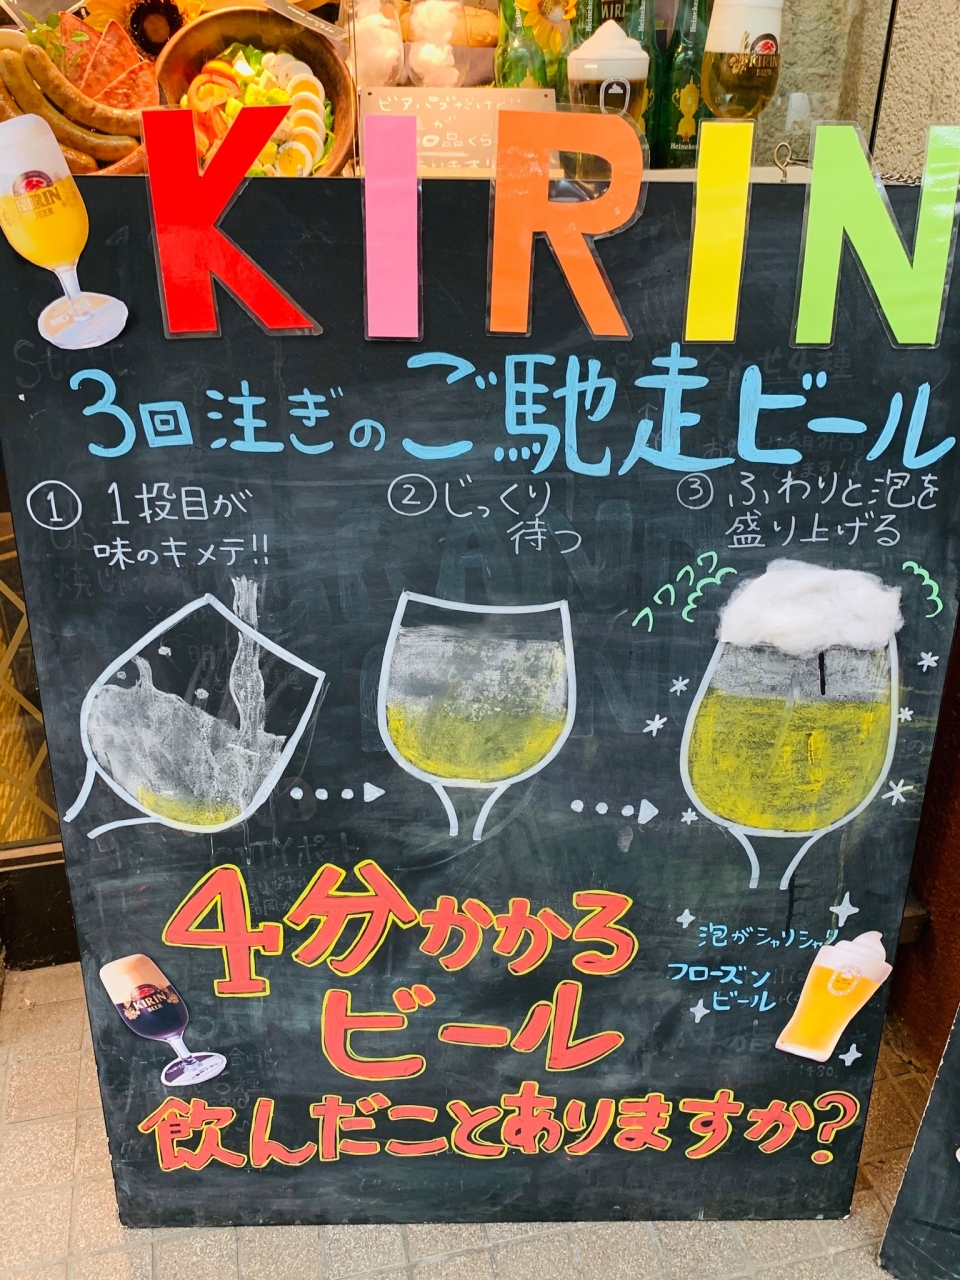 KIRIN
3回注ぎのご馳走ビール
① 1投目が
味のキメテ!!
②じっくり
待つ
③ ふわりと泡を
盛り上げる
フワフワフワ
4分かかる
ビール
飲んだことありますか?
泡がシャリシャリ
フローズン
ビール
KIRIN
BEER
KIRIN
BEER
KIRIN
BEER
Heineken
Heineken